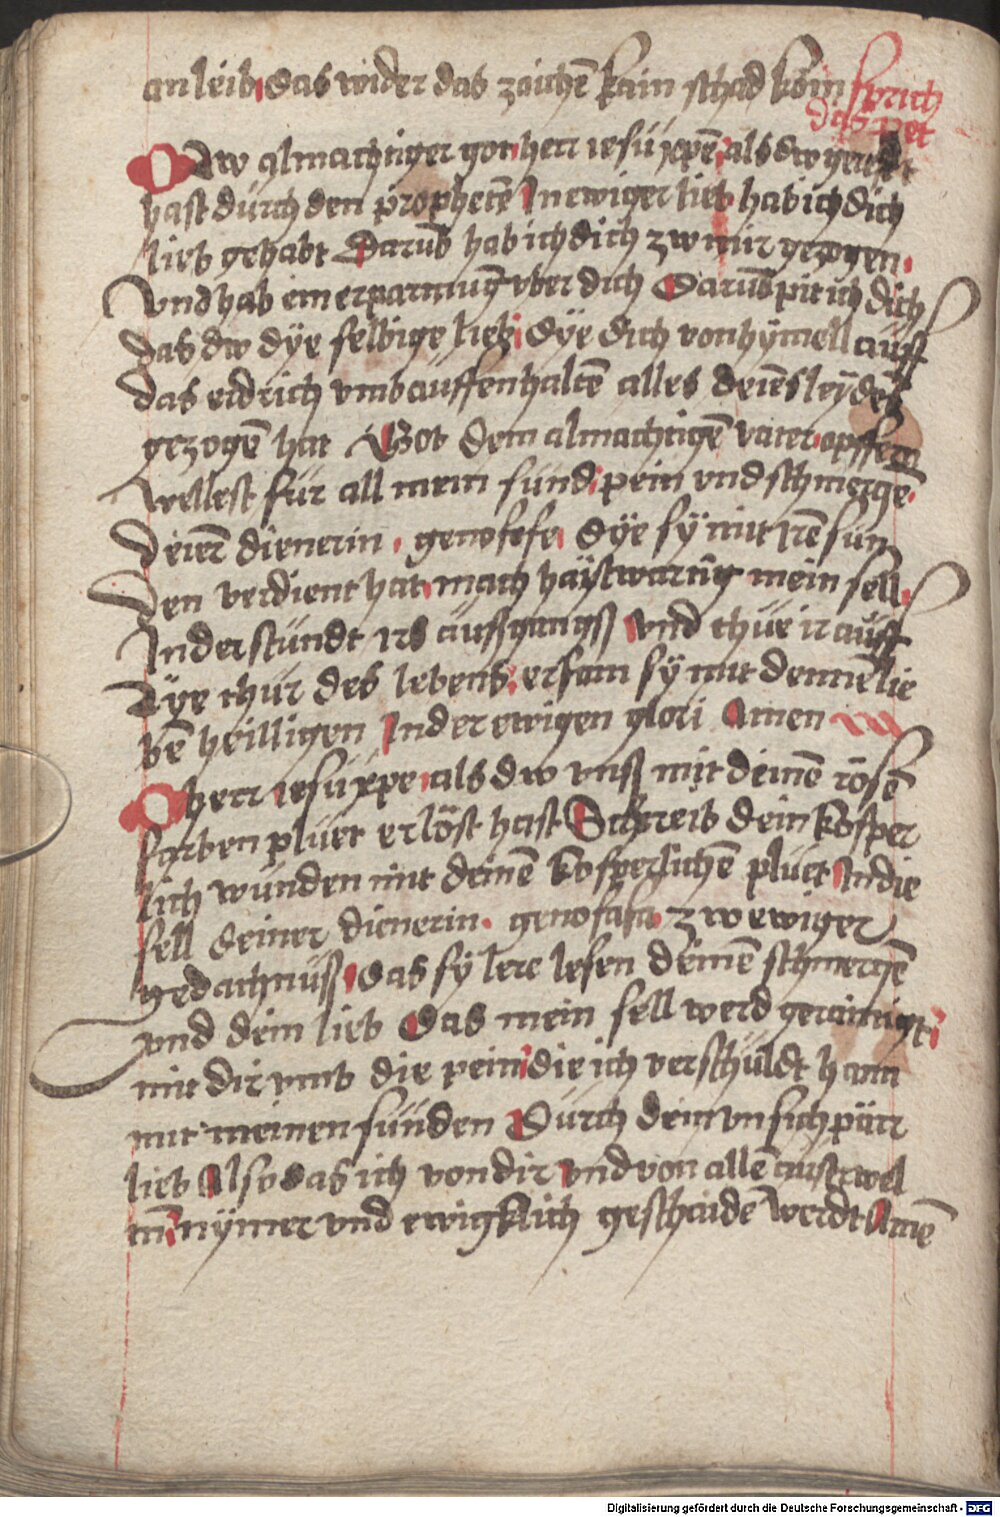 an leib das wider das zaichē kain schad köm sprich
das pet
O dw almachtiger got herr iesu xpē als dw geredt
hast durch den prophetē In ewiger lieb hab ich dich
lieb gehabt Darūb hab ich dich zw mir gezogen
vnd hab ein erparmūg vber dich Darūb pit ich dich
das dw dÿe selbige lieb dÿe dich von hymell auff
das erdrich vmb auffenhaltē alles deīes leÿdēs
gezogē hat Got dem almachtigē vater opffern
wellest für all mein sünd pein vnd schmerczē
deīer dienerin genofefe dÿe sÿ mit irē sun
den verdient hat mach haÿlwarūg mein sell
In der stundt irs außgangß vnd thüe ir auff
dÿe thür des lebens ersam sÿ mit deinnē lie
bē heilligen In der ewigen glori Amen
O herr iesu xpe als dw vnß mit deinē rosē
farben pluet erlöst hast Schreib dein kosper
lich wunden mit deinē kosperlichē pluet In die
sell deiner dienerin genofafa zw ewiger
gedachnuß das sÿ lere lesen deinē schmerczē
vnd dein lieb Das mein sell werd gerainigt
mit dir vmb die pein die ich verschuldt hann
mit meinen sünden Durch dein vnsichpärr
lieb Also das ich von dir vnd von allē auserwel
tn̄ nÿmer vnd ewigklich geschaidē werdt Amē
Digitalisierung gefördert durch die Deutsche Forschungsgemeinschaft - DFG